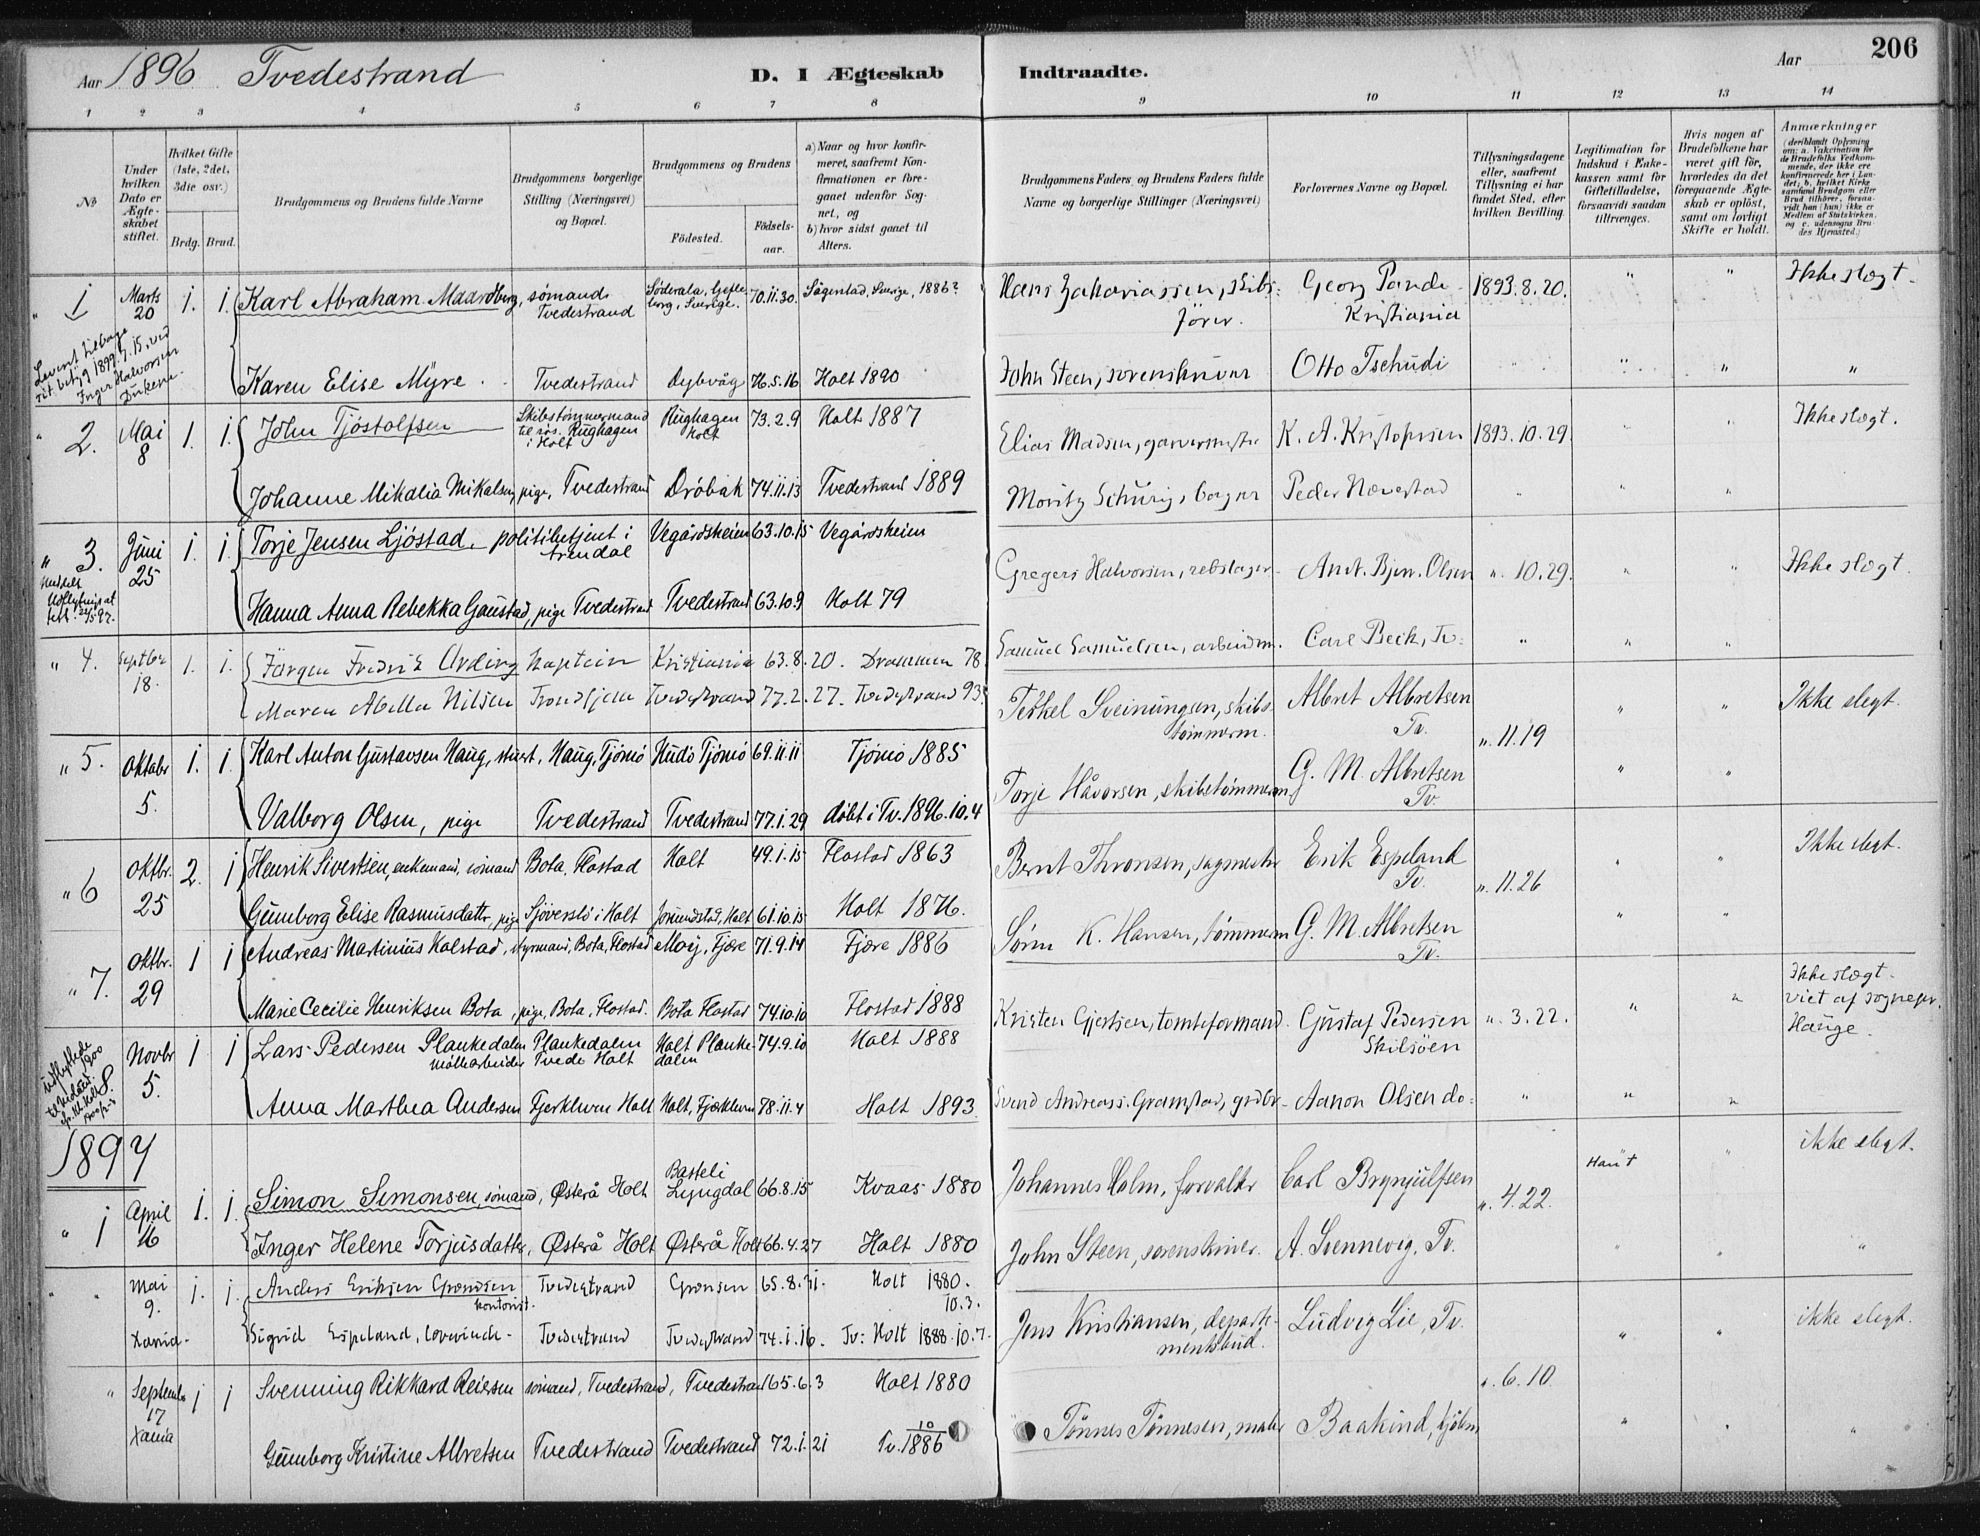 Aar 1896 Tvedestrand D. I Ægteskab
1 2 3 4 5 6 7 8
No
Under hvilken Dato er Ægteskabet stiftet.
Hvilket Gifte (1ste, 2det, 3die osv.)
Brdg. Brud.
Brudgommens og Brudens fulde Navne
Brudgommens borgerlige Stilling (Næringsvei) og Bopæl.
Brudgommens og Brudens
Fødested. Fødsels-aar.
a) Naar og hvor konfirmeret, saafremt Konfirmationen er foregaaet udenfor Sognet, og
b) hvor sidst gaaet til Alters.
" 1 Marts 20 1. 1. Karl Abraham Maardberg, sømand Tvedestrand Söderala, Gefleborg, Sverige. 70.11.30. Sverige, 1886?
Karen Elise Myre. Tvedestrand Dybvåg 76.5.16 Holt 1890
" 2. Mai 8 1. 1. John Tjöstolfsen Skibstømmermand Rughagen i Holt Rughagen Holt 73.2.9 Holt 1887
Johanne Mikalia Mikalsen, pige, Tvedestrand Dröbak 74.11.13 Tvedestrand 1889
" 3. Juni 25 1. 1. Torje Jensen Ljöstad, politibetjent i Arendal Vegårdsheien 63.10.15 Vegårdsheien
Hanna Anna Rebekka Gaustad, pige Tvedestrand Tvedestrand 63.10.9 Holt 79
" 4. Septbr 18. 1. 1. Jörgen Fredrik Arding kaptein Kristiania 63.8.20. Drammen 78.
Maren Abella Nilsen Trondhjem Tvedestrand 77.2.27. Tvedestrand 93.
" 5. Oktobr 5. 1. 1. Karl Anton Gustavsen Haug, stuert, Haug, Tjömö Hudö Tjömö 69.11.11 Tjömö 1885
Valborg Olsen, pige Tvedestrand Tvedestrand 77.1.29 döbt i Tv. 1896.10.4
" 6 Oktbr. 25 2. 1 Henrik Sivertsen, enkemand, sömand Bota, Flostad Holt 49.1.15 Flostad 1863
Gunborg Elise Rasmusdatr, pige Sjöverstö i Holt Jorunstad, Holt 61.10.15 Holt 1876.
" 7. Oktbr. 29 1 1 Andreas Martinius Kalstad, styrmand, Bota, Flostad Moij, Fjære 71.9.14 Fjære 1886
Marie Cecilie Henriksen Bota, pige, Bota, Flostad. Bota Flostad 74.10.10 Flostad 1888
8. Novbr 5. 1 1 Lars Pedersen Plankedalen Møllearbeider Plankedalen Tvede Holt Holt Plankedalen 74.9.10 Holt 1888
Anna Marthea Andersen Fjerkleven Holt Holt, Fjærkleven 78.11.4 Holt 1893.
1897
" 1 April 16 1. 1. Simon Simonsen, sömand, Østerå Holt Basteli Lyngdal 66.8.15 Kvaas 1880
Inger Helene Torjusdatter, Østerå Holt Østerå Holt 66.4.27 Holt 1880
" " Mai 9. 1. 1. Anders Eriksen Grønsen kontorist. Tvedestrand Grønsen 65.8.31. Holt 1880. 10.3.
Xania. Sigrid Espeland, Tvedestrand Tvedestrand 74.1.16. Tv: Holt 1888.10.7.
" September 17 Xania 1 1 Svenning Rikkard Reiersen sömand, Tvedestrand, Tvedestrand 65.6.3 Holt 1880
Gunborg Kristine Albretsen Tvedestrand Tvedestrand 72.1.21 Tv. 10/1886
Indtraadte. Aar 206
9 10 11 12 13 14
Brudgommens Faders og Brudens Faders fulde Navne og borgerlige Stillinger (Næringsvei)
Forlovernes Navne og Bopæl.
Tillysningsdagene eller, saafremt Tillysning ei har fundet Sted, efter hvilken Bevilling.
Legitimation for Indskud i Enkekassen samt for Giftetilladelse, forsaavidt saadan tiltrænges.
Hvis nogen af Brudefolkene har været gift før, hvorledes da det foregaaende Ægteskab er opløst, samt om lovligt Skifte er holdt.
Anmærkninger (deriblandt Oplysning om: a. Vakcination for de Brudefolks Vedkommende, der ikke ere konfirmerede her i Landet; b. hvilket Kirkesamfund Brudgom eller Brud tilhører, forsaavidt han (hun) ikke er Medlem af Statskirken, og c. udensogns Brudes Hjemsted.)
Hans Zakariassen, skibsförer. Georg Pande Kristiania 1893.8.20. " " Ikke slegt.
John Steen, sorenskriver Otto Tschudi " " " "
Elias Madsen, garvermester K. A. Kristophersen 1893.10.29. " " Ikke slegt.
Moritz Schurig, borger Peder Nævestad " " "
Gregers Halvorsen, rebslager. Andr. Bjer. Olsen ". 10.29. " " Ikke slegt.
Samuel Samuelsen, arbeidsm. Carl Beck, Tv: " " "
Terkel Sveinungsen, skibstömmerm. Albret Albretsen Tv. ". 11.19 " " Ikke slegt.
Torje Håvorsen, skibstömmerm. G. M. Albretsen Tv. " "
Bernt Thronsen, sagmester Erik Espeland Tv. ". 11.26 " " Ikke slegt.
Sørin K. Hansen, tömmerm G. M. Albretsen Tv. " "
Kristen Gjertsen, tomteformand. Gustaf Pedersen Skilsöen ". 3.22. " " Ikke slegt. viet af sognepr. Hauge.
Svend Andreass. Gramstad, grdbr. Aanon Olsen do: " " "
Johannes Holm, forvalter Carl Brynjulfsen ". 4.22. " ikke slegt.
John Steen, sorenskriver. A. Svennevig, Tv. " " "
Jens Kristiansen, departementsbud. Ludvig Lie, Tv. ". 6.10. " " ikke slegt.
Tönnes Tönnesen, maler Baakind, " " "